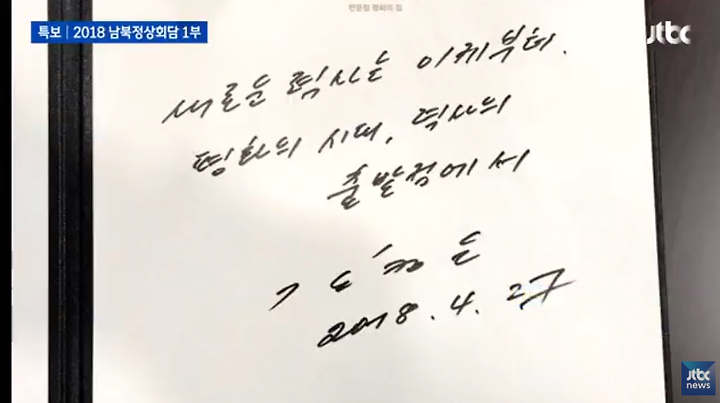 판문점 평화의 집
특보 | 2018 남북정상회담 1부
jtbc
새로운 력사는 이제부터.
평화의 시대, 력사의
출발점에서
김정은
2018. 4. 27
jtbc
news